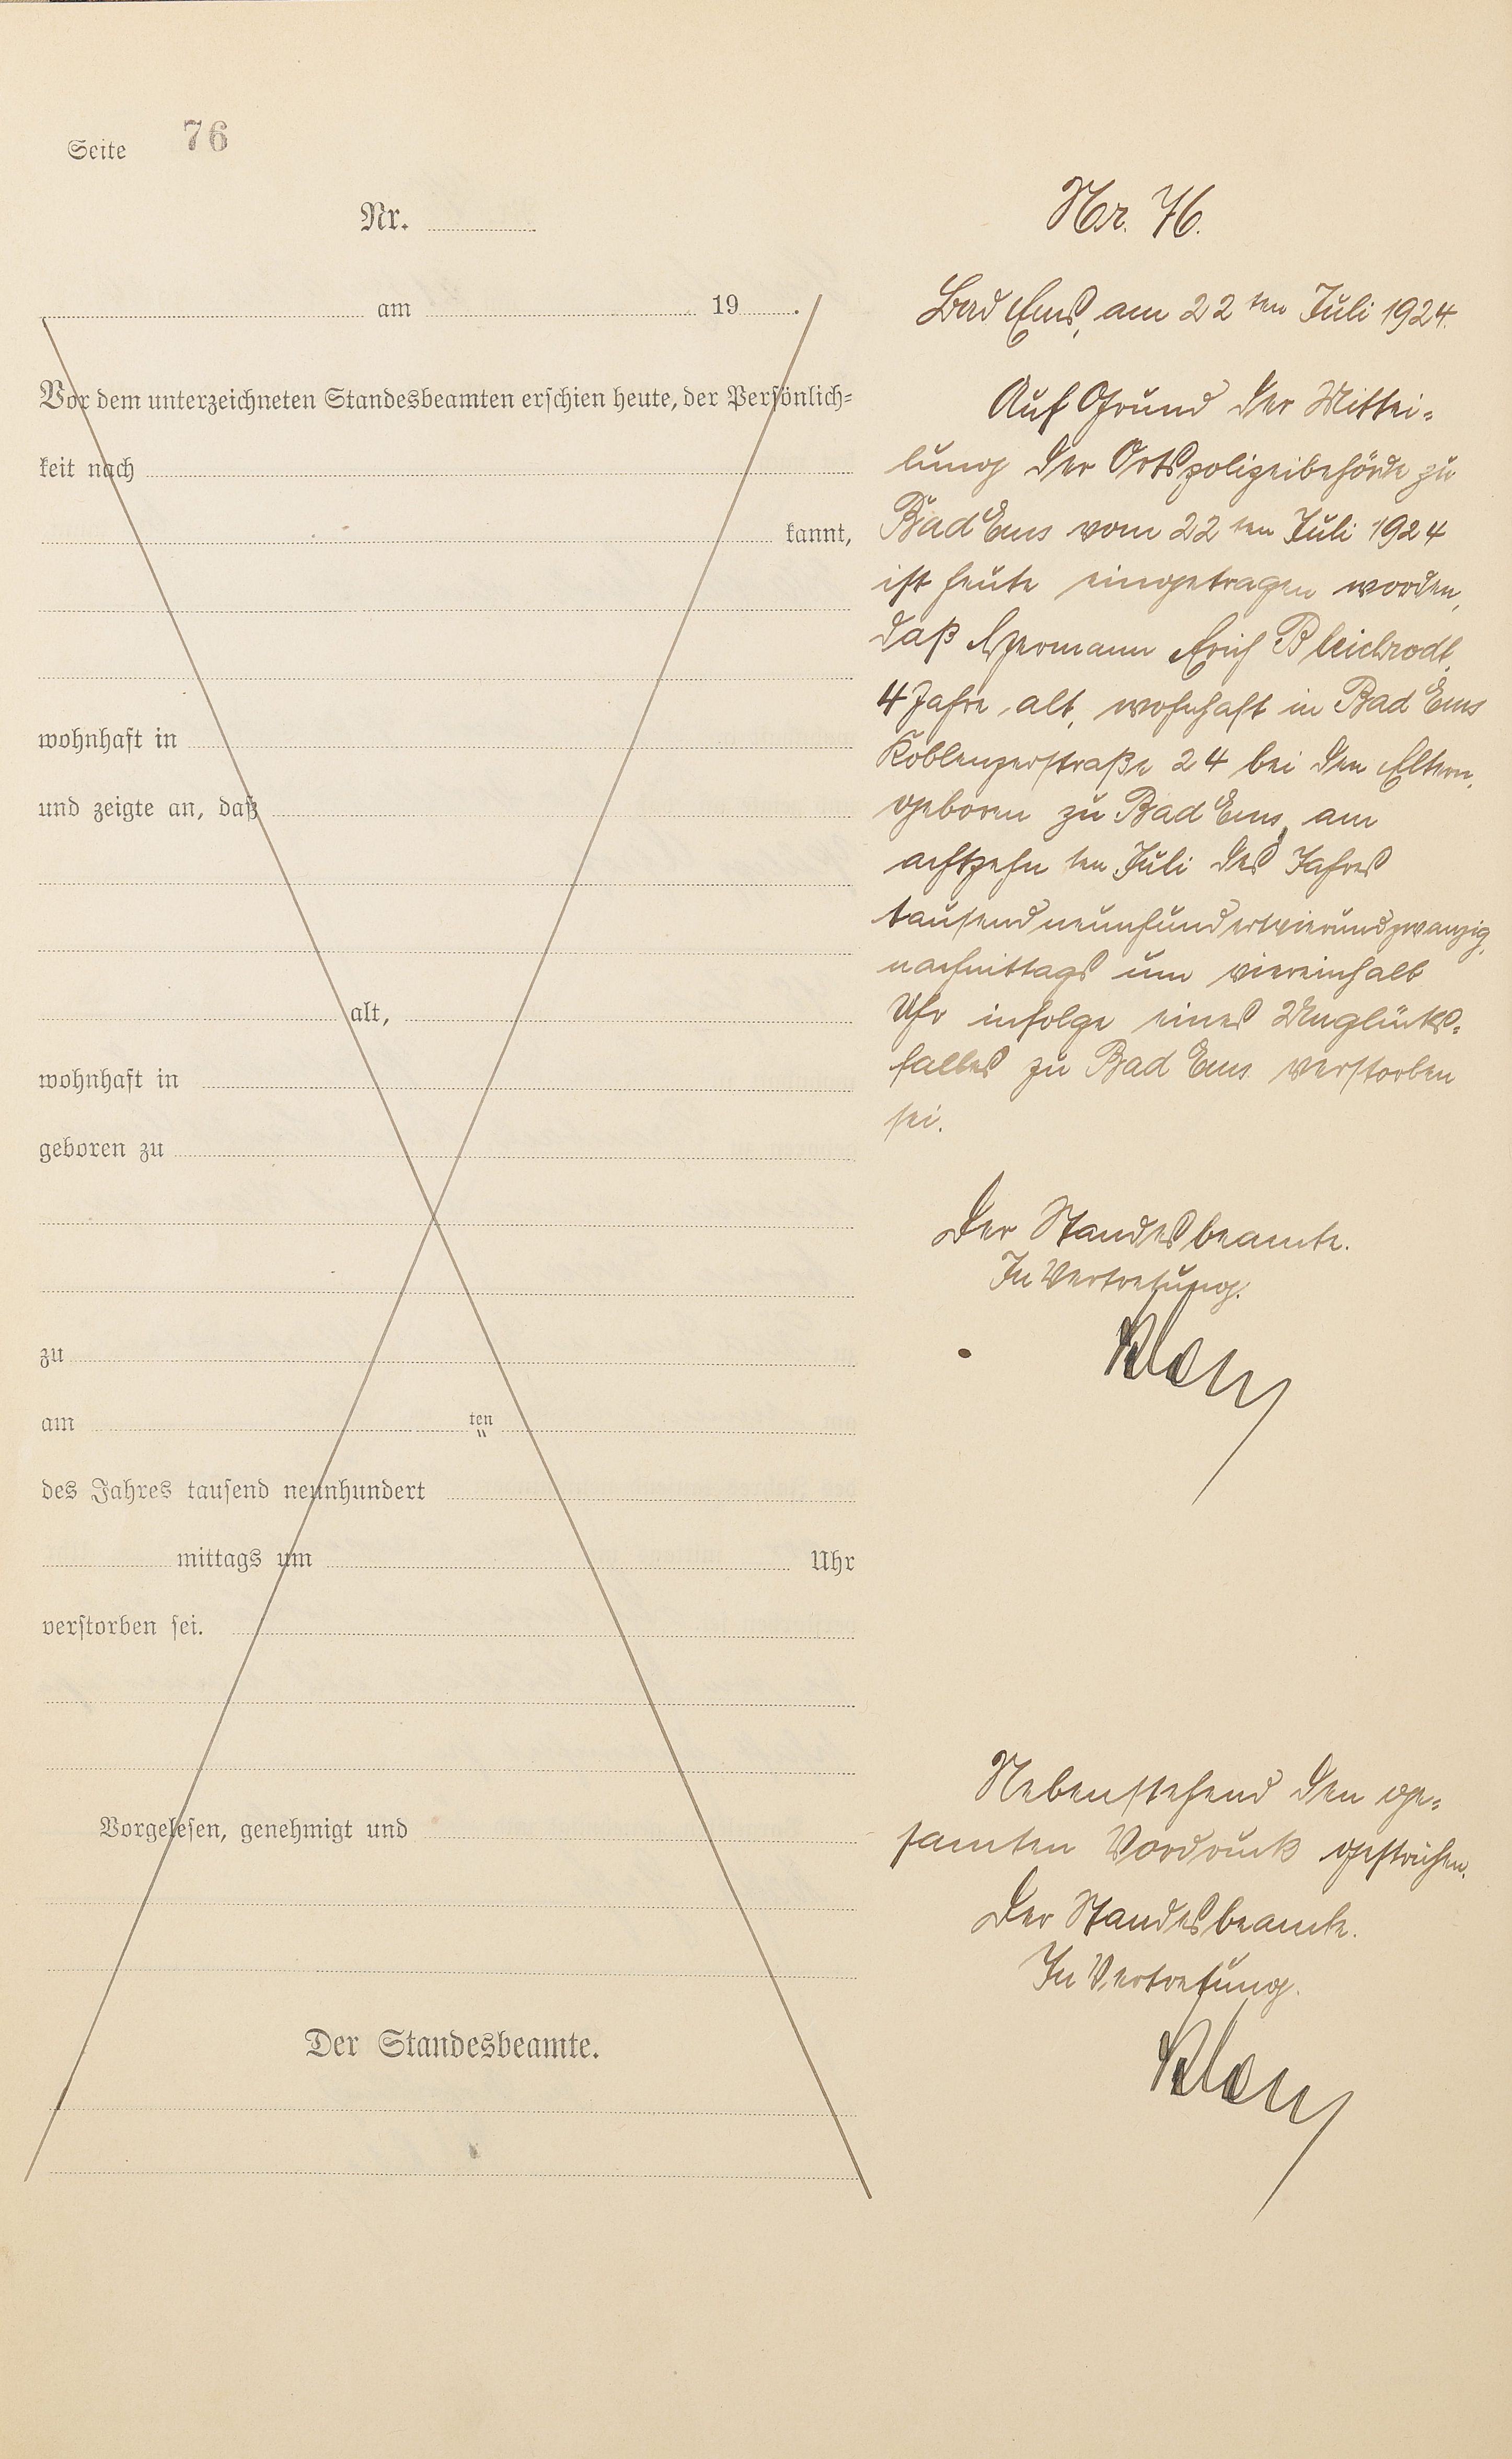 Seite 76
Nr.
am 19 .
Vor dem unterzeichneten Standesbeamten erschien heute, der Persönlich=
keit nach
kannt,
wohnhaft in
und zeigte an, daß
alt,
wohnhaft in
geboren zu
zu
am ten
des Jahres tausend neunhundert
mittags um Uhr
verstorben sei.
Vorgelesen, genehmigt und
Der Standesbeamte.
Nr. 76.
Bad Ems, am 22 ten Juli 1924.
Auf Grund der Mittei=
lung der Ortspolizeibehörde zu
Bad Ems vom 22 ten Juli 1924
ist heute eingetragen worden,
daß Hermann Erich Bleichrodt,
4 Jahre alt, wohnhaft in Bad Ems
Koblenzerstraße 24 bei den Eltern,
geboren zu Bad Ems, am
achtzehn ten Juli des Jahres
tausendneunhundertvierundzwanzig,
nachmittags um viereinhalb
Uhr infolge eines Unglücks=
falles zu Bad Ems verstorben
sei.
Der Standesbeamte.
In Vertretung.
Nebenstehend den ge=
samten Vordruck gestrichen.
Der Standesbeamte.
In Vertretung.